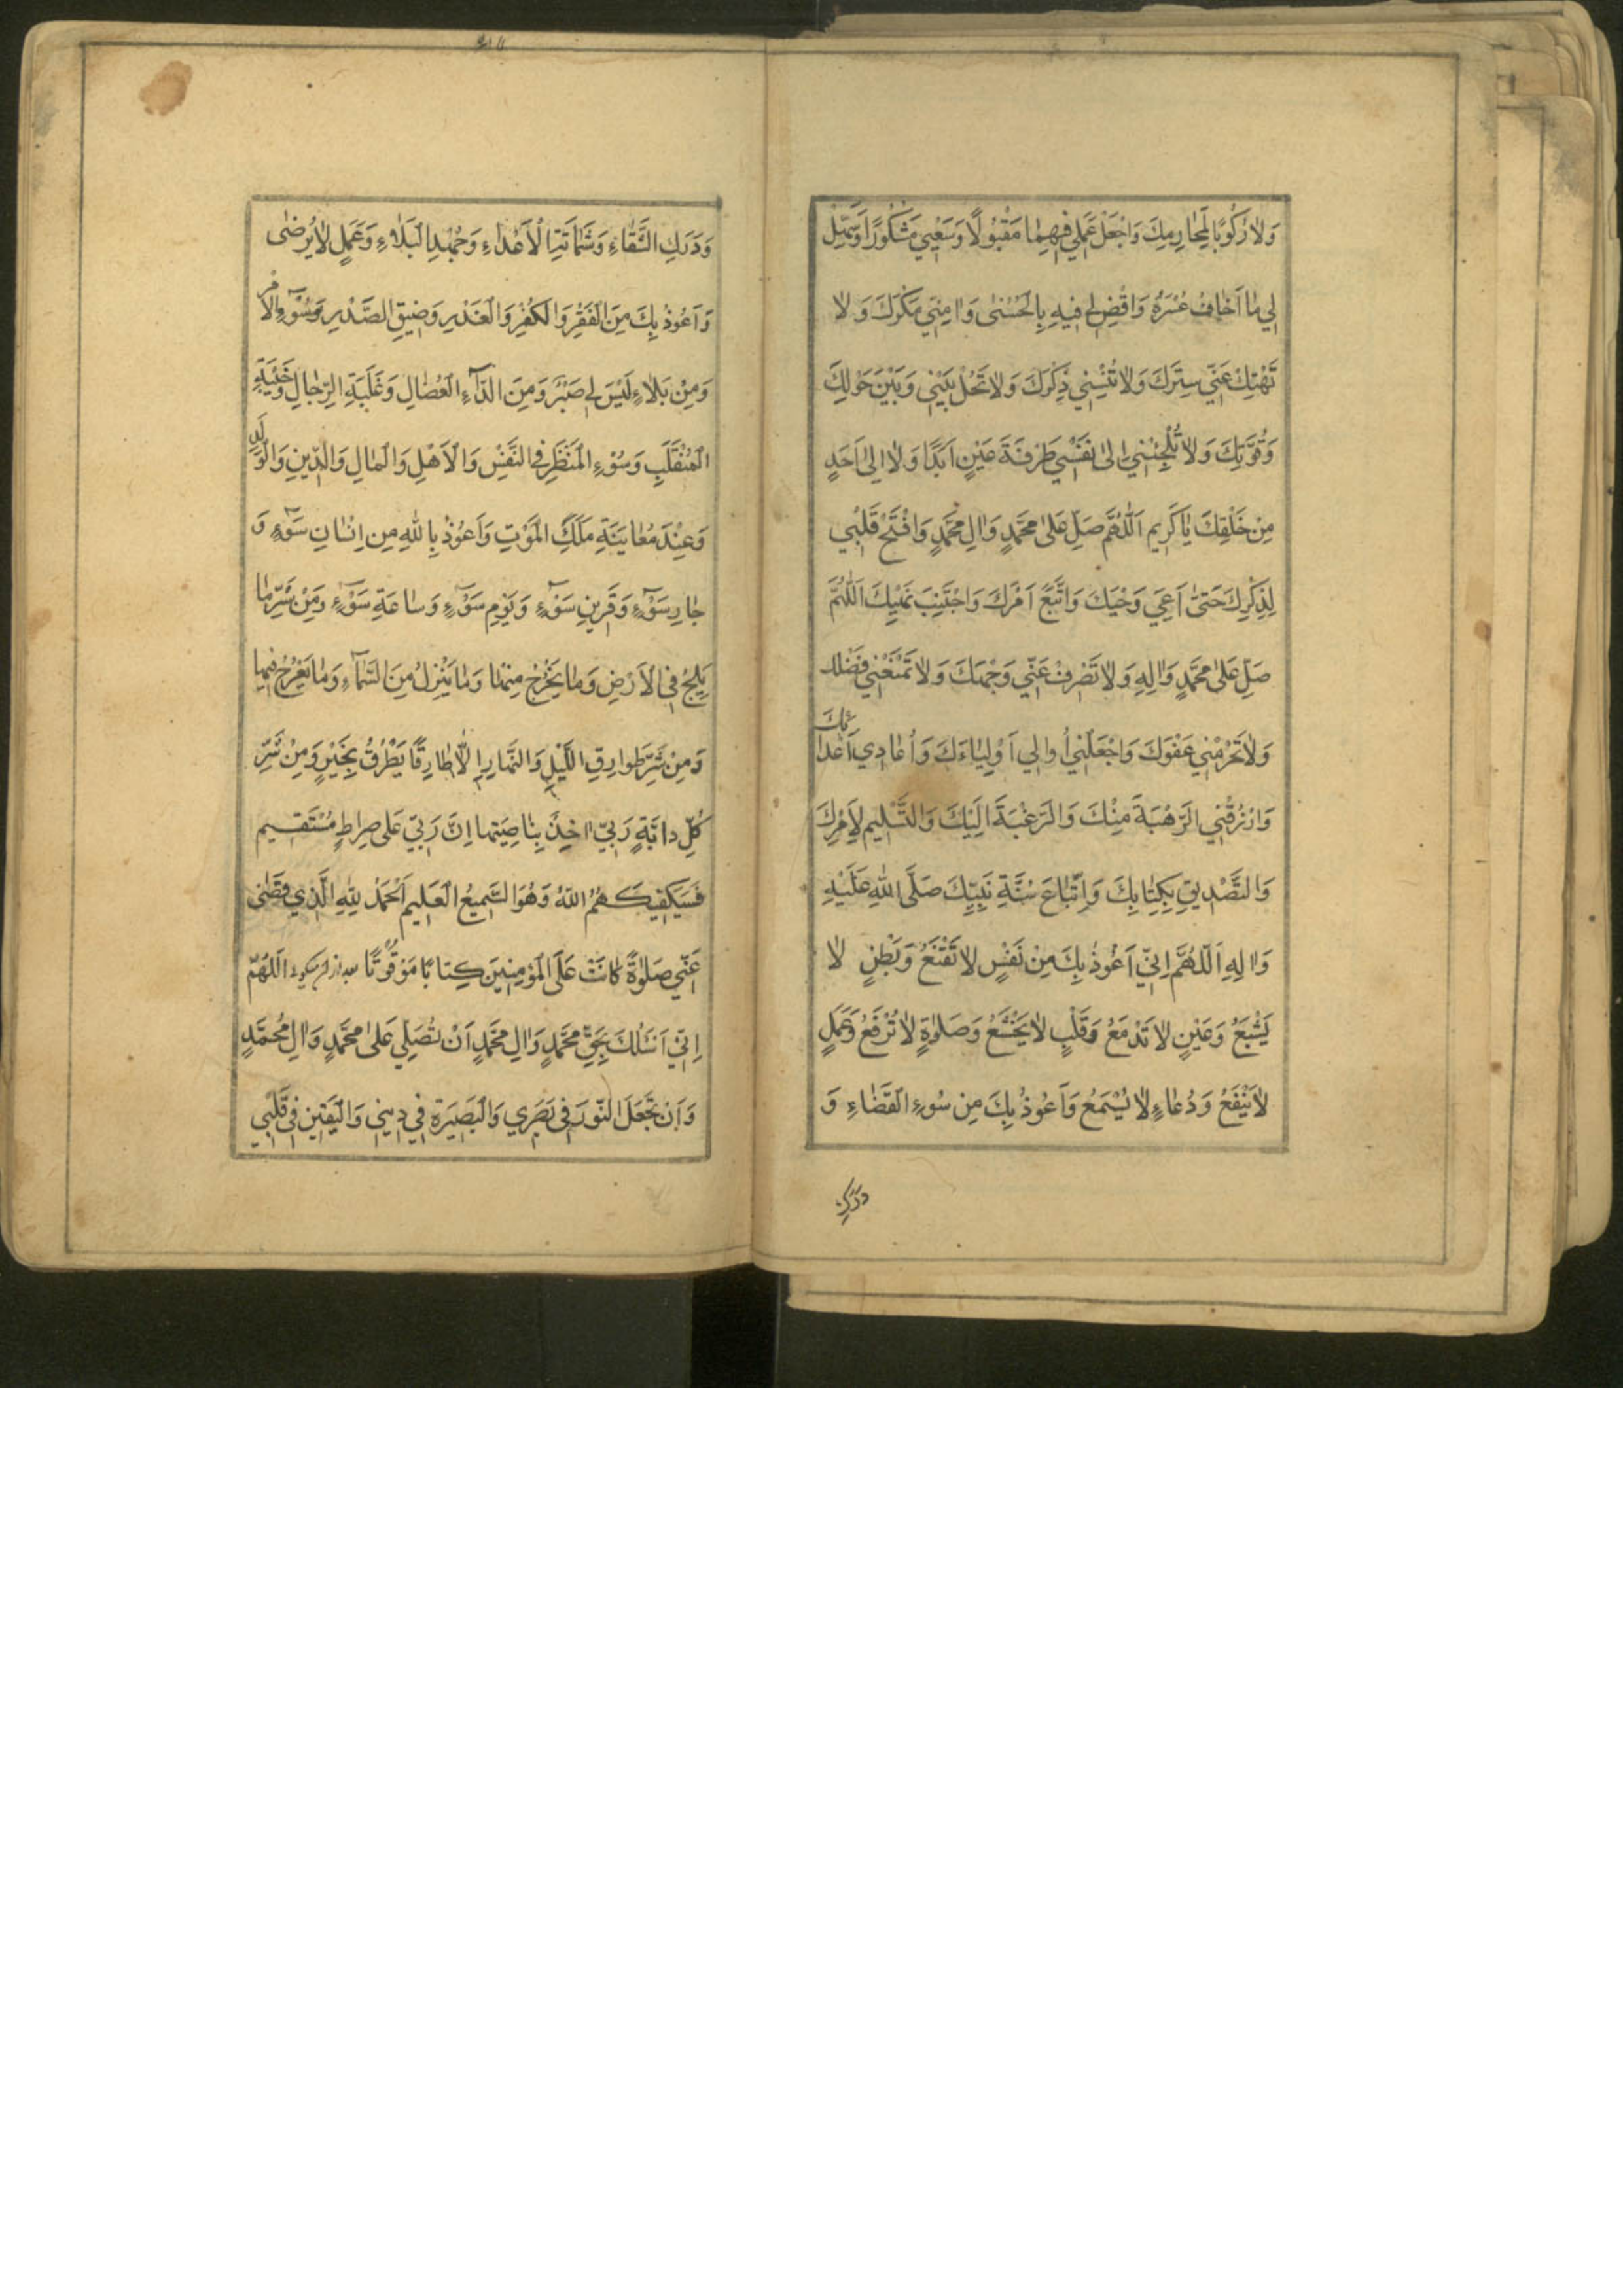 وَلا رُكُوبًا لِمَحٰارِمِكَ وَاجْعَلْ عَمَلي فيهِمٰا مَقْبُولًا وَسَعْيي مَشْكُورًا وَسَهِّلْ
لي مٰا اَخٰافُ عُسْرَهُ وَاقْضِ لي فيهِ بِالْحُسْنىٰ وَاٰمِنّي مَكْرَكَ وَلٰا
تَهْتِكْ عَنّي سِتْرَكَ وَلا تُنْسِني ذِكْرَكَ وَلا تَحُلْ بَيْني وَبَيْنَ حَوْلِكَ
وَقُوَّتِكَ وَلا تُلْجِئْني اِلىٰ نَفْسي طَرْفَةَ عَيْنٍ اَبَدًا وَلا اِلىٰ اَحَدٍ
مِنْ خَلْقِكَ يٰا كَريم اَللّٰهُمَّ صَلِّ عَلىٰ مُحَمَّدٍ وَاٰلِ مُحَمَّدٍ وَافْتَحْ قَلْبي
لِذِكْرِكَ حَتّىٰ اَعِيَ وَحْيَكَ وَاتَّبِعَ اَمْرَكَ وَاجْتَنِبَ نَهْيَكَ اَللّٰهُمَّ
صَلِّ عَلىٰ مُحَمَّدٍ وَاٰلِهِ وَلا تَصْرِفْ عَنّي وَجْهَكَ وَلا تَمْنَعْني فَضْلك
وَلا تَحْرِمْني عَفْوَكَ وَاجْعَلْني اُوالي اَوْلِيٰاءَكَ وَاُعٰادي اَعْدائَكَ
وَارْزُقْنِي الرَّهْبَةَ مِنْكَ وَالرَّغْبَةَ اِلَيْكَ وَالتَّسْليم لِاَمْرِكَ
وَالتَّصْديقِ بِكِتٰابِكَ وَاتِّبٰاعَ سُنَّةِ نَبِيِّكَ صَلَّى اللّٰهِ عَلَيْهِ
وَاٰلِهِ اَللّٰهُمَّ اِنّي اَعُوذُ بِكَ مِنْ نَفْسٍ لا تَقْنَعُ وَبَطْنٍ لٰا
يَشْبَعُ وَعَيْنٍ لا تَدْمَعُ وَقَلْبٍ لا يَخْشَعُ وَصَلوٰةٍ لا تُرْفَعُ وَعَمَلٍ
لا يَنْفَعُ وَدُعٰاءٍ لا يُسْمَعُ وَاَعُوذُ بِكَ مِنْ سُوءِ الْقَضٰاءِ وَ
دَرَكِ
وَدَرَكِ الشَّقٰاءِ وَشَمٰاتَةِ الْاَعْدٰاءِ وَجُهْدِ الْبَلٰاءِ وَعَمَلٍ لا يُرْضىٰ
وَاَعُوذُ بِكَ مِنَ الْفَقْرِ وَالْكُفْرِ وَالْغَدْرِ وَضيقِ الصَّدْرِ وَسُوۤءِ الْاَمْرِ
وَمِنْ بَلٰاءٍ لَيْسَ لي صَبْرٌ وَمِنَ الدّٰاۤءِ الْعُضٰالِ وَغَلَبَةِ الرِّجٰالِ وَخَيْبَةِ
الْمُنْقَلَبِ وَسُوْءِ الْمَنْظَرِ فِي النَّفْسِ وَالْاَهْلِ وَالْمٰالِ وَالدّينِ وَالْوَلَدِ
وَعِنْدَ مُعٰايَنَةِ مَلَكِ الْمَوْتِ وَاَعُوذُ بِاللّٰهِ مِن اِنْسٰانِ سَوْۤءٍ وَ
جٰارِ سَوْۤءٍ وَقَرينِ سَوْۤءٍ وَيَوْمِ سَوْۤءٍ وَسٰاعَةِ سَوْۤءٍ وَمِنْ شَرِّ مٰا
يَلِجُ فِي الْاَرْضِ وَمٰا يَخْرُجُ مِنْهٰا وَمٰا يَنْزِلُ مِنَ السَّمٰاۤءِ وَمٰا يَعْرُجُ فيهٰا
وَمِنْ شَرِّ طَوارِقِ اللَّيْلِ وَالنَّهٰارِ اِلّٰا طٰارِقًا يَطْرُقُ بِخَيْرٍ وَمِنْ شَرِّ
كُلِّ دابَّةٍ رَبّي اٰخِذٌ بِنٰاصِيَتِها اِنَّ رَبّي عَلى صِراطٍ مُسْتَقيم
فَسَيَكْفيكَهُمُ اللّٰهُ وَهُوَ السَّميعُ الْعَليم اَلْحَمْدُ لِلّٰهِ الَّذي قَضٰى
عَنّي صَلوٰةً كٰانَتْ عَلَى الْمُؤْمِنينَ كِتابًا مَوْقُوتًا اَللّٰهُمَّ
اِنّي اَسْئَلُكَ بِحَقِّ مُحَمَّدٍ وَاٰلِ مُحَمَّدٍ اَنْ تُصَلِّيَ عَلىٰ مُحَمَّدٍ وَاٰلِ مُحَمَّدٍ
وَاَنْ تَجْعَلَ النّورَ في بَصَري وَالْبَصيرَةِ في ديني وَالْيَقينِ في قَلْبي